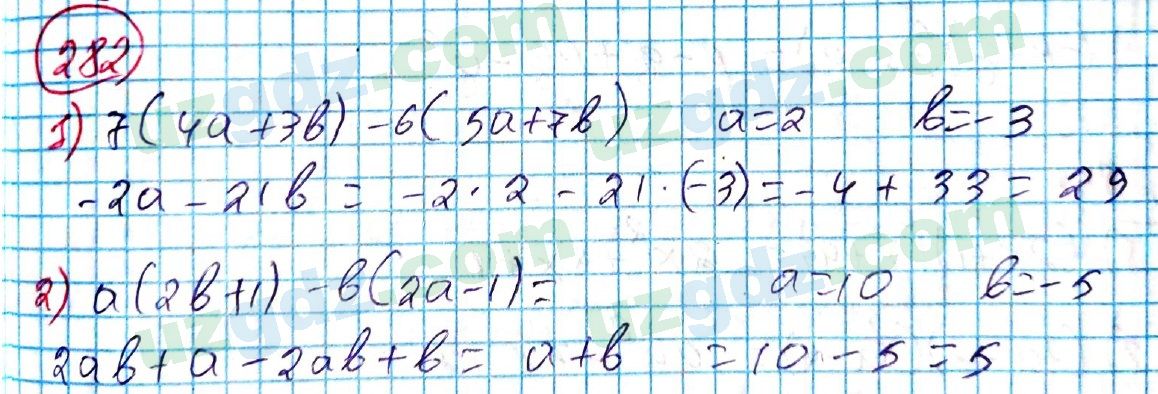 282
1) 7(4a+3b) -6(5a+7b) a=2 b=-3
-2a - 21b = -2·2 - 21·(-3) = -4 + 33 = 29
2) a(2b+1) -b(2a-1)= a=10 b=-5
2ab+a-2ab+b= a+b =10-5=5
uzgdz.com
uzgdz.com
uzgdz.com
uzgdz.com